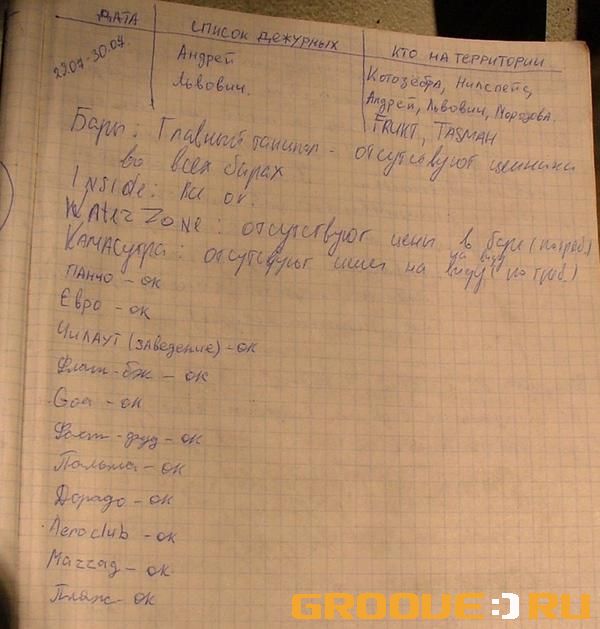 ДАТА СПИСОК ДЕЖУРНЫХ КТО НА ТЕРРИТОРИИ
29.07-30.07. Андрей Котозебра, Нилспейс,
Львович. Андрей, Львович, Морозова.
FRUKT, TASMAH
Бары: Главный танцпол - отсутствуют ценники
во всех барах
INSIDE: все ок.
WATERZONE: отсутствуют цены в баре (потреб.)
на виду
КАМАСУТРА: отсутствуют цены на виду (потреб.)
ПАНЧО - ОК
Евро - ОК
ЧИЛАУТ (ЗАВЕДЕНИЕ) - ОК
- ОК
Goa - ОК
Фаст-фуд - ОК
Пальма - ОК
Дорадо - ОК
Aeroclub - ОК
- ОК
Пляж - ОК
GROOVE:)RU